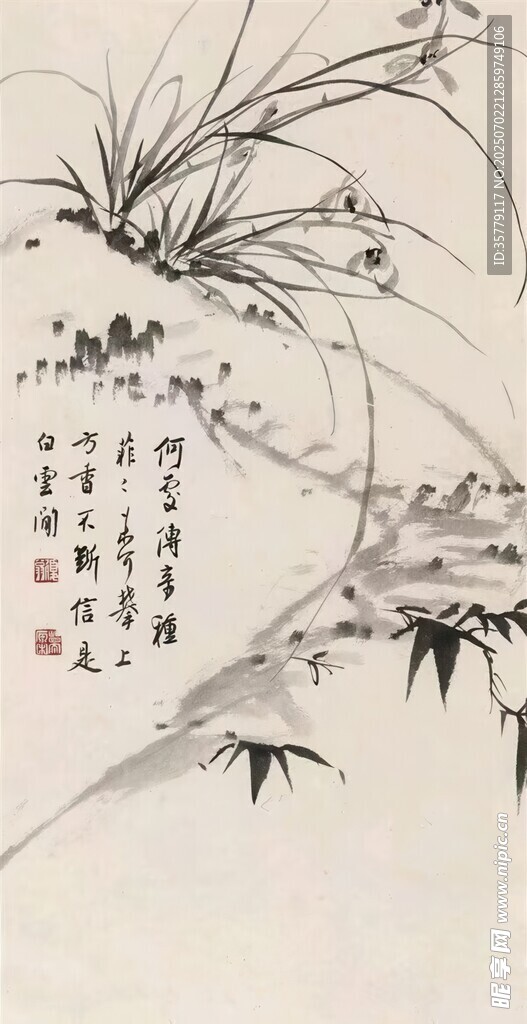 何处傳奇種
菲〻未可攀上
方香不斷信是
白雲間
ID:35779117 NO:20250702212859749106
昵享网 www.nipic.cn